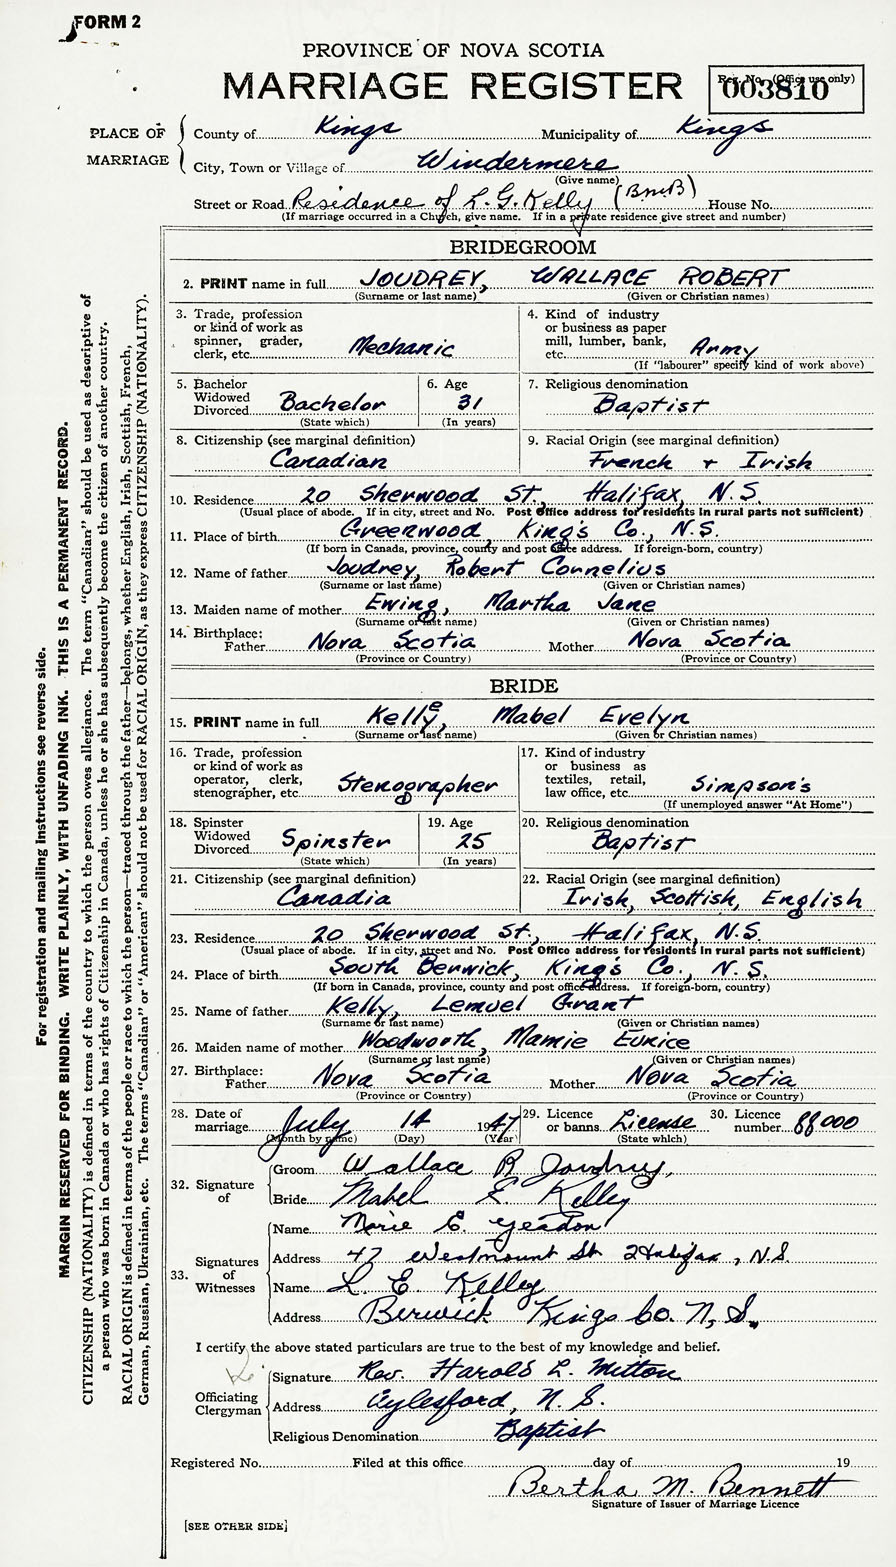 FORM 2
PROVINCE OF NOVA SCOTIA
MARRIAGE REGISTER
Reg. No. (Office use only)
003810
PLACE OF MARRIAGE
County of Kings Municipality of Kings
City, Town or Village of Windermere
(Give name)
Street or Road Residence of L. G. Kelly (BMB) House No.
(If marriage occurred in a Church, give name. If in a private residence give street and number)
BRIDEGROOM
2. PRINT name in full JOUDREY, WALLACE ROBERT
(Surname or last name) (Given or Christian names)
3. Trade, profession or kind of work as spinner, grader, clerk, etc. Mechanic
4. Kind of industry or business as paper mill, lumber, bank, etc. Army
(If "labourer" specify kind of work above)
5. Bachelor Widowed Divorced Bachelor
(State which)
6. Age 31
(In years)
7. Religious denomination
Baptist
8. Citizenship (see marginal definition)
Canadian
9. Racial Origin (see marginal definition)
French + Irish
10. Residence 20 Sherwood St., Halifax, N.S.
(Usual place of abode. If in city, street and No. Post Office address for residents in rural parts not sufficient)
11. Place of birth Greenwood, King's Co., N.S.
(If born in Canada, province, county and post office address. If foreign-born, country)
12. Name of father Joudrey, Robert Cornelius
(Surname or last name) (Given or Christian names)
13. Maiden name of mother Ewing, Martha Jane
(Surname or last name) (Given or Christian names)
14. Birthplace: Father Nova Scotia Mother Nova Scotia
(Province or Country) (Province or Country)
BRIDE
15. PRINT name in full Kelley, Mabel Evelyn
(Surname or last name) (Given or Christian names)
16. Trade, profession or kind of work as operator, clerk, stenographer, etc. Stenographer
17. Kind of industry or business as textiles, retail, law office, etc. Simpson's
(If unemployed answer "At Home")
18. Spinster Widowed Divorced Spinster
(State which)
19. Age 25
(In years)
20. Religious denomination
Baptist
21. Citizenship (see marginal definition)
Canadia
22. Racial Origin (see marginal definition)
Irish, Scottish, English
23. Residence 20 Sherwood St., Halifax, N.S.
(Usual place of abode. If in city, street and No. Post Office address for residents in rural parts not sufficient)
24. Place of birth South Berwick, King's Co., N.S.
(If born in Canada, province, county and post office address. If foreign-born, country)
25. Name of father Kelly, Lemuel Grant
(Surname or last name) (Given or Christian names)
26. Maiden name of mother Woodworth, Mamie Eunice
(Surname or last name) (Given or Christian names)
27. Birthplace: Father Nova Scotia Mother Nova Scotia
(Province or Country) (Province or Country)
28. Date of marriage July 14 1947
(Month by name) (Day) (Year)
29. Licence or banns License
(State which)
30. Licence number 88000
32. Signature of
Groom Wallace R Joudrey,
Bride Mabel E Kelley
33. Signatures of Witnesses
Name Marie E. Yeadon
Address 47 Westmount St Halifax, N.S.
Name L. E. Kelley
Address Berwick Kings Co. N.S.
I certify the above stated particulars are true to the best of my knowledge and belief.
Officiating Clergyman
Signature Rev. Harold L. Mitton
Address Aylesford, N.S.
Religious Denomination Baptist
Registered No. Filed at this office day of 19
Bertha M. Bennett
Signature of Issuer of Marriage Licence
[SEE OTHER SIDE]
For registration and mailing instructions see reverse side.
MARGIN RESERVED FOR BINDING. WRITE PLAINLY, WITH UNFADING INK. THIS IS A PERMANENT RECORD.
CITIZENSHIP (NATIONALITY) is defined in terms of the country to which the person owes allegiance. The term "Canadian" should be used as descriptive of
a person who was born in Canada or who has rights of Citizenship in Canada, unless he or she has subsequently become the citizen of another country.
RACIAL ORIGIN is defined in terms of the people or race to which the person—traced through the father—belongs, whether English, Irish, Scottish, French,
German, Russian, Ukrainian, etc. The terms "Canadian" or "American" should not be used for RACIAL ORIGIN, as they express CITIZENSHIP (NATIONALITY).